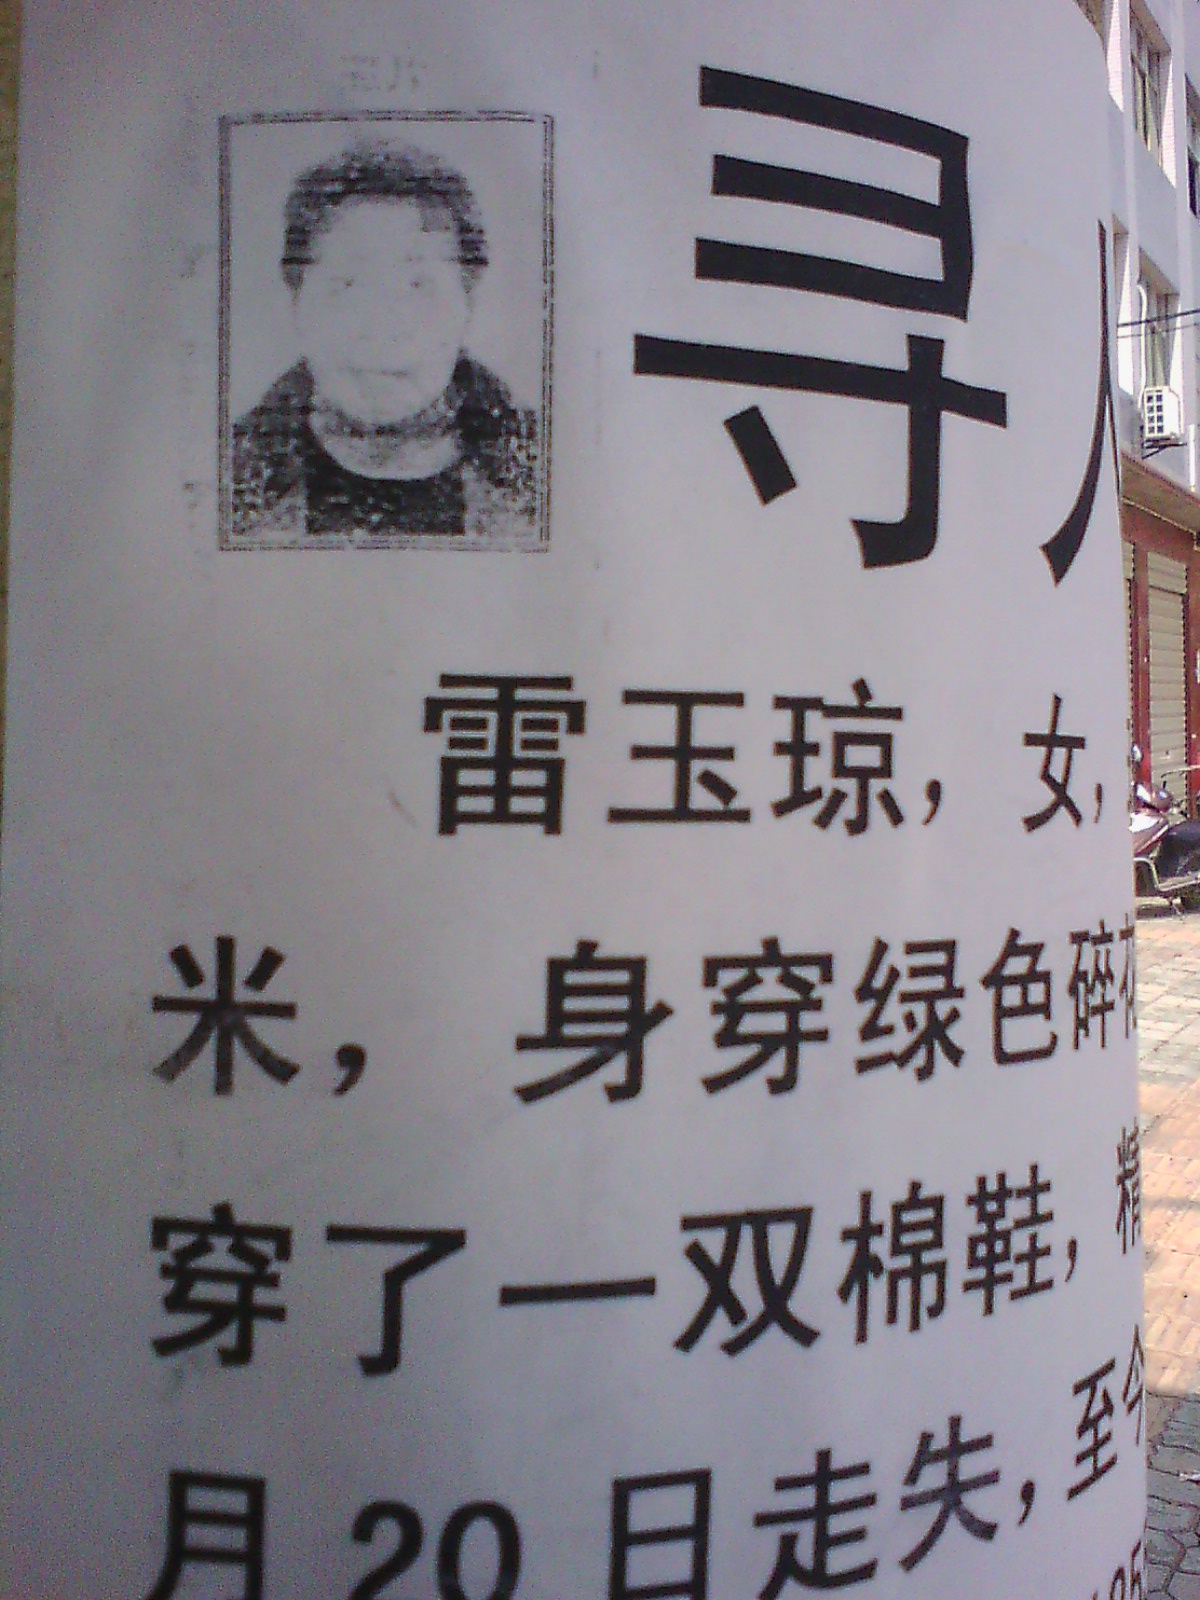 寻人
雷玉琼，女，
米，身穿绿色碎花
穿了一双棉鞋，精
月20日走失，至今